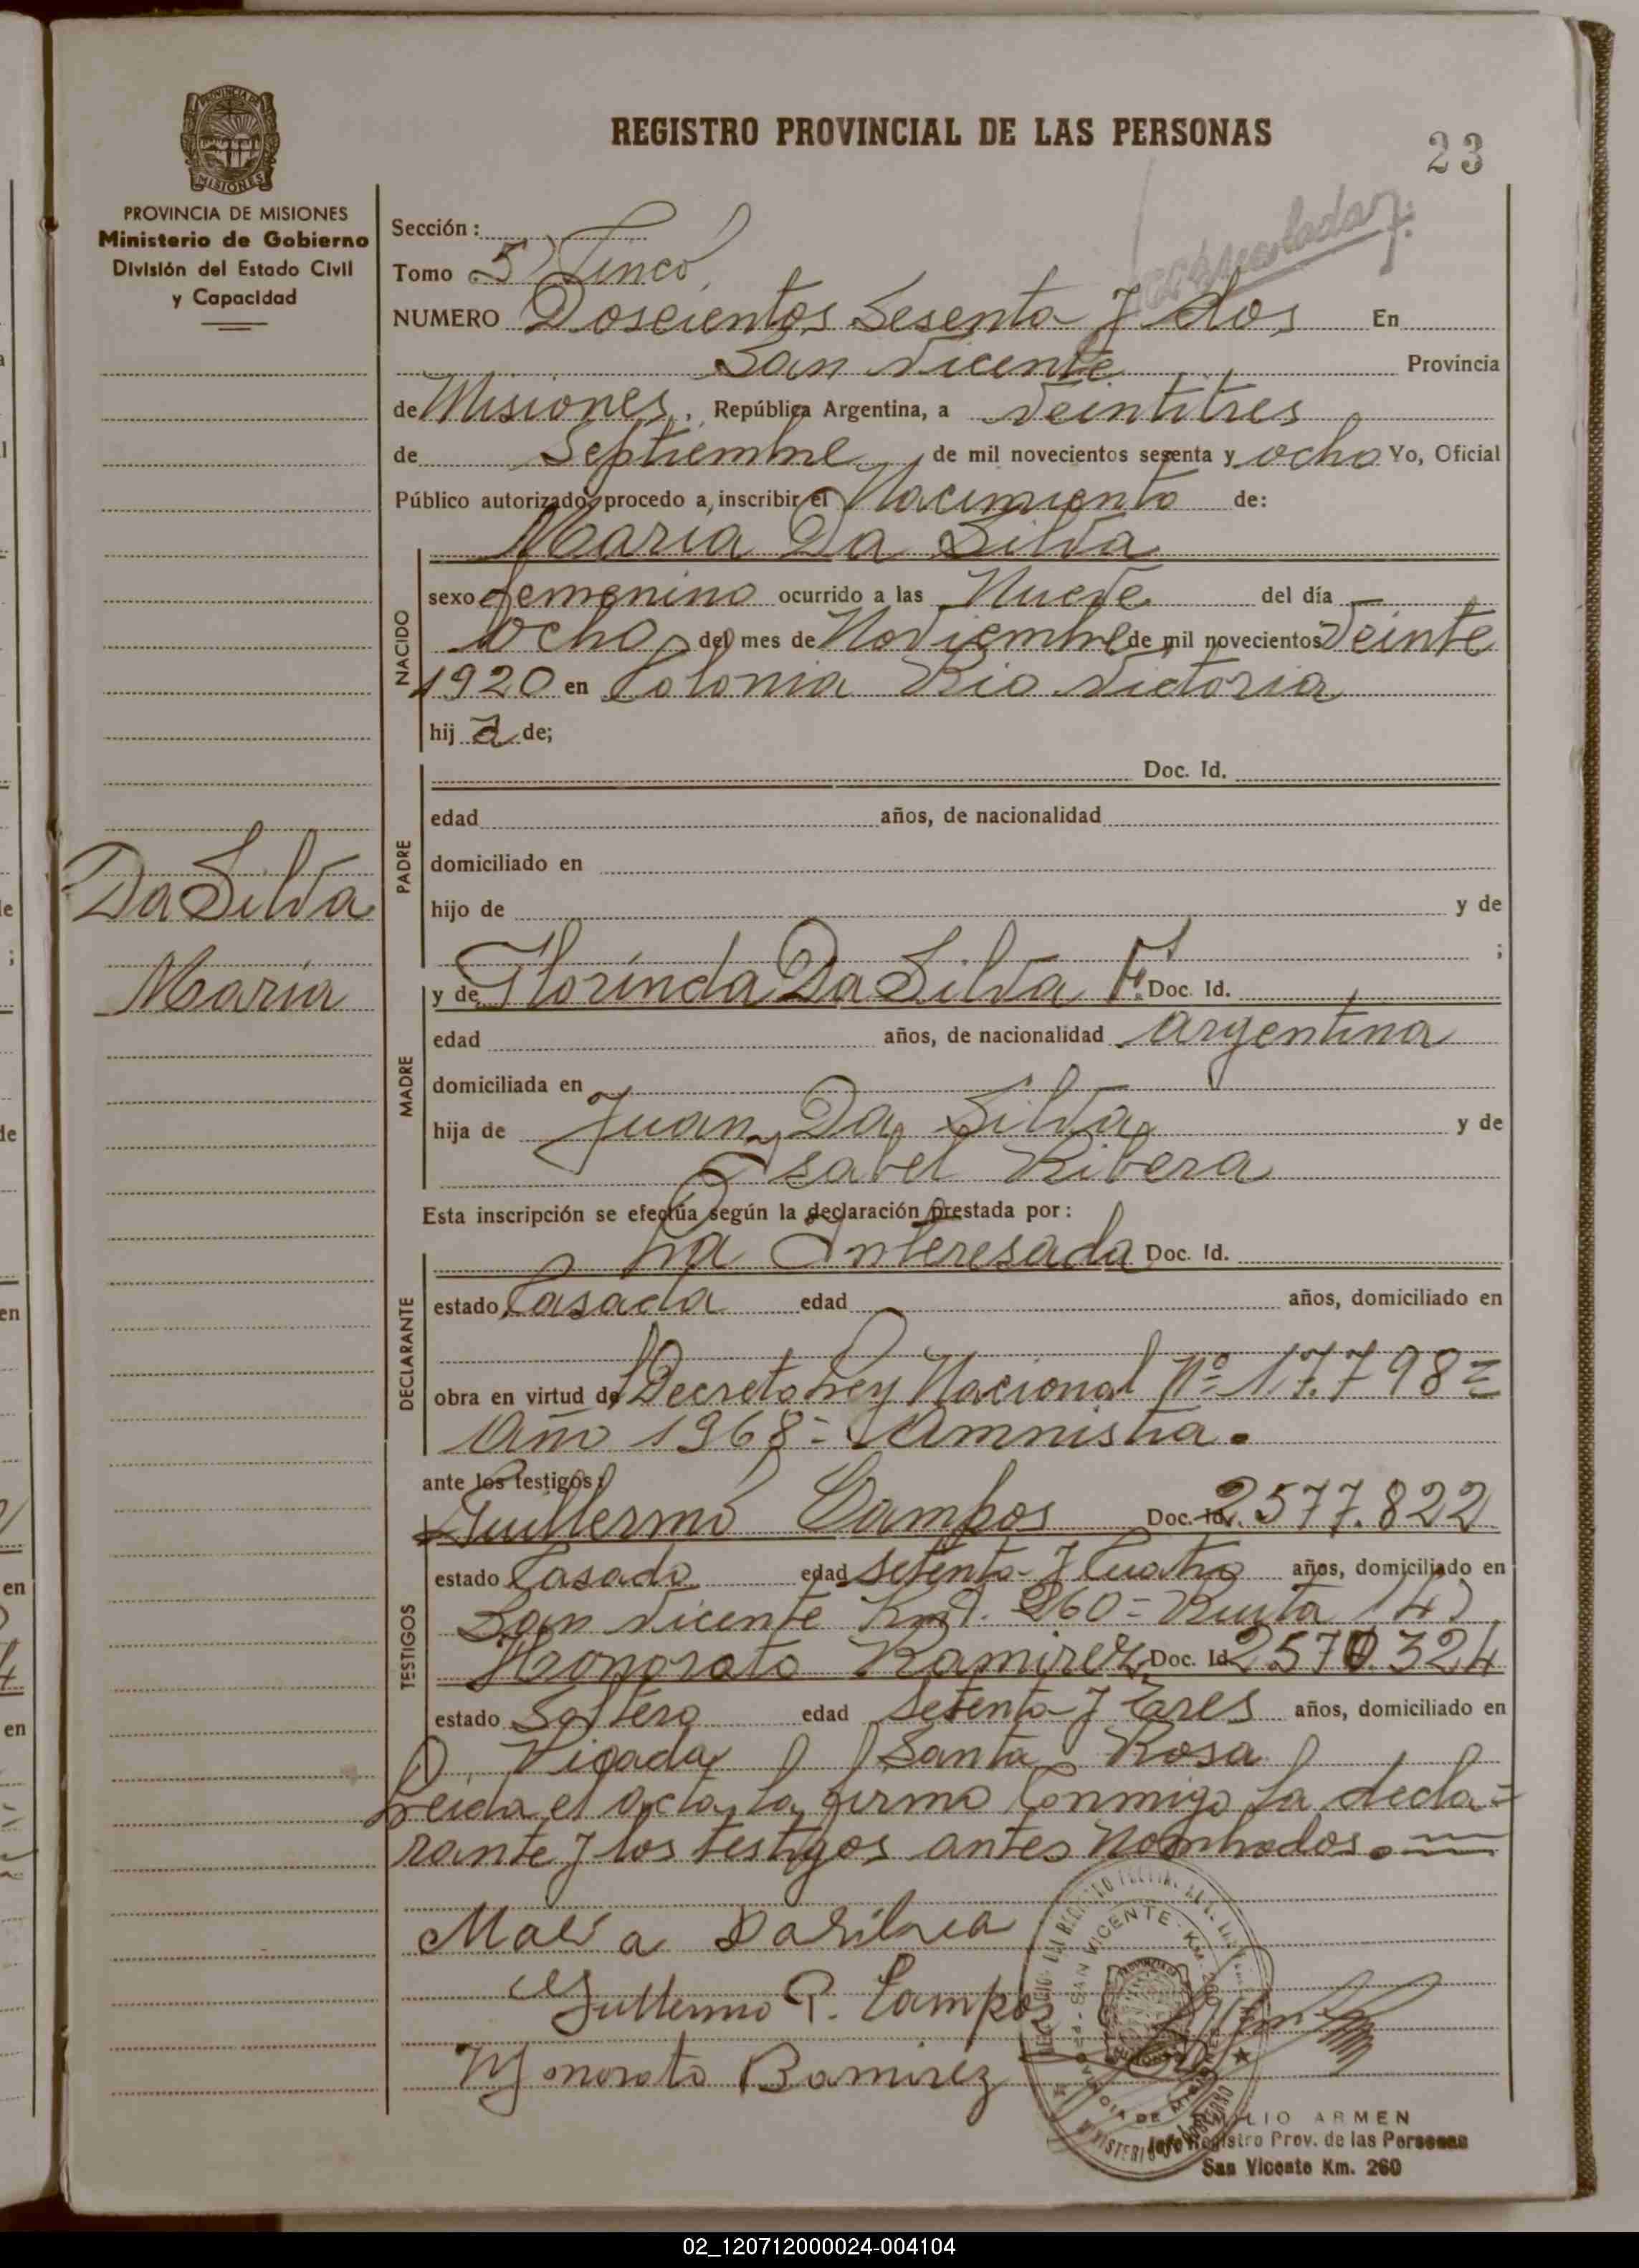 REGISTRO PROVINCIAL DE LAS PERSONAS
23
PROVINCIA DE MISIONES
Ministerio de Gobierno
División del Estado Civil
y Capacidad
Sección :
Tomo 5 Cinco
NUMERO Doscientos Sesenta y dos En
San Vicente Provincia
de Misiones, República Argentina, a Veintitres
de Septiembre de mil novecientos sesenta y ocho Yo, Oficial
Público autorizado, procedo a inscribir el Nacimiento de:
Maria Da Silva
NACIDO
sexo femenino ocurrido a las Nueve del día
ocho del mes de Noviembre de mil novecientos Veinte
1920 en Colonia Rio Victoria
hij a de;
PADRE
Doc. Id.
edad años, de nacionalidad
domiciliado en
hijo de y de
;
Da Silva
Maria
MADRE
y de Florinda Da Silva F. Doc. Id.
edad años, de nacionalidad Argentina
domiciliada en
hija de Juan Da Silva y de
Isabel Ribera
Esta inscripción se efectúa según la declaración prestada por :
DECLARANTE
La Interesada Doc. Id.
estado Casada edad años, domiciliado en
obra en virtud de Decreto Ley Nacional Nº 17.798=
Año 1968- Amnistia.
ante los testigos:
TESTIGOS
Guillermo Campos Doc. Id. 2577.822
estado Casado edad Setenta y Cuatro años, domiciliado en
San Vicente Km. 260 = Ruta 14)
Honorato Ramirez Doc. Id 2.570.324
estado Soltero edad Setenta y Tres años, domiciliado en
Picada Santa Rosa
Leida el acta, la firma Conmigo la decla=
rante y los testigos antes Nombrados.
Maria Da Silva
Guillermo P. Campos
Honorato Ramirez
SAN VICENTE - KM. 260
PROVINCIA DE MISIONES
EMILIO ARMEN
Jefe Registro Prov. de las Personas
San Vicente Km. 260
02_120712000024-004104